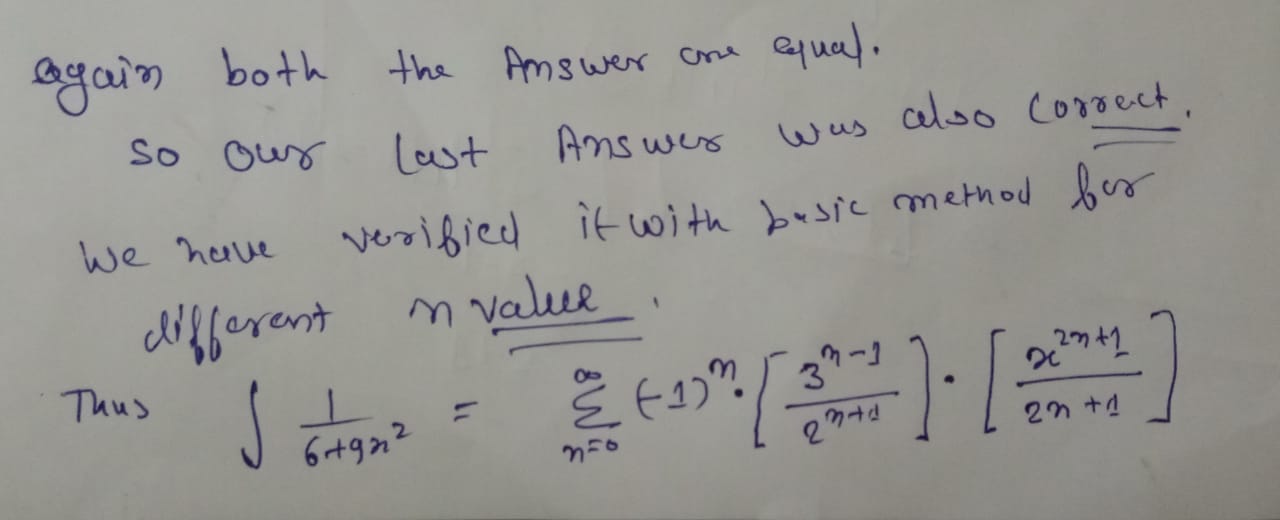 again both the Answer are equal.
so our last Answer was also correct.
We have verified it with basic method for
different n value.
Thus ∫ 1/(6+9x²) = ∑_{n=0}^{∞} (-1)^n · [3^{n-1}/2^{n+1}] · [x^{2n+1}/(2n+1)]